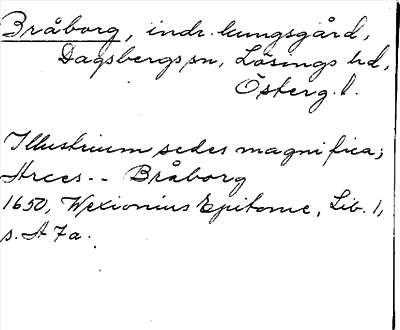 Bråborg, indr. kungsgård,
Dagsbergs sn, Lösings hd,
Österg. l.
Illustrium sedes magnifica;
Arces -- Bråborg
1650, Wexionius Epitome, Lib. 1,
s. A 7a.